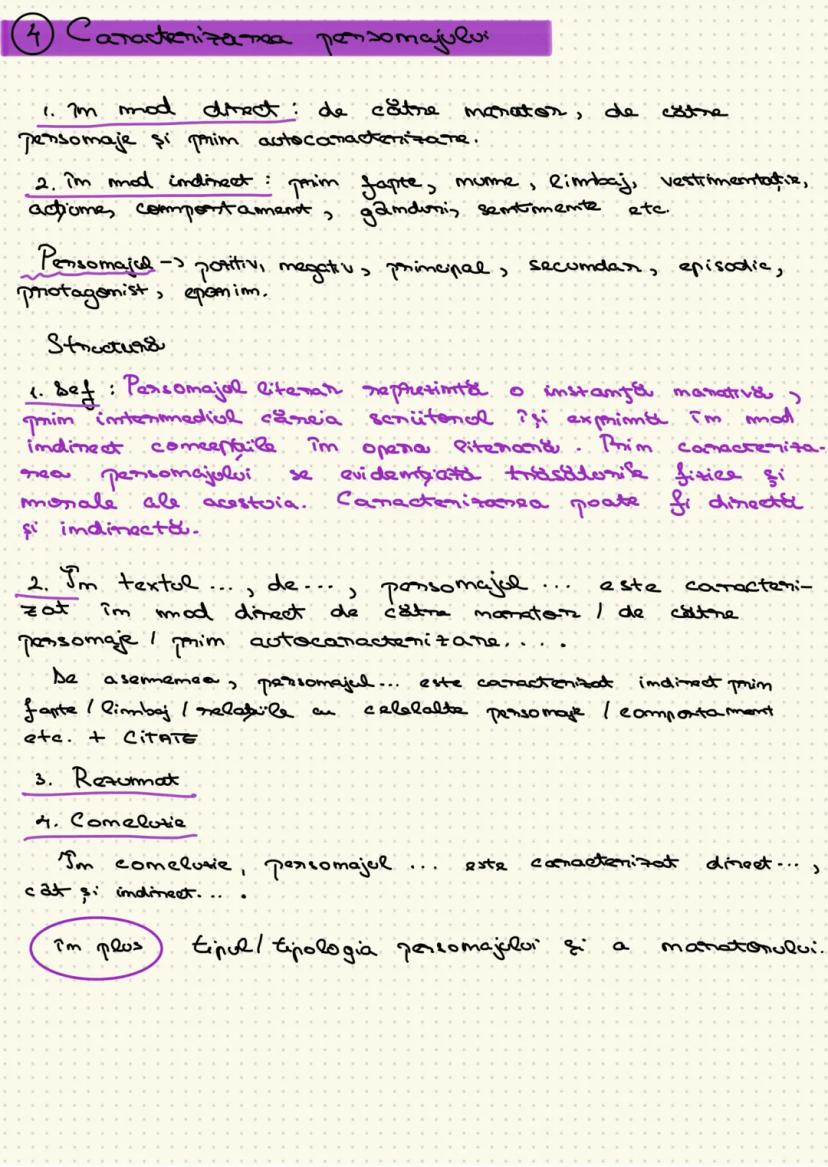 4 Caracterizarea personajului
1. În mod direct : de către narator, de către
personaje și prin autocaracterizare.
2. în mod indirect : prin fapte, nume, limbaj, vestimentație,
acțiune, comportament, gânduri, sentimente etc.
Personajul -> pozitiv, negativ, principal, secundar, episodic,
protagonist, eponim.
Structură
1. Def : Personajul literar reprezintă o instanță narativă,
prin intermediul căreia scriitorul își exprimă în mod
indirect concepțiile în opera literară. Prin caracteriza-
rea personajului se evidențiază trăsăturile fizice și
morale ale acestuia. Caracterizarea poate fi directă
și indirectă.
2. În textul ..., de ..., personajul ... este caracteri-
zat în mod direct de către narator / de către
personaje / prin autocaracterizare. ...
De asemenea, personajul... este caracterizat indirect prin
fapte / limbaj / relațiile cu celelalte personaje / comportament
etc. + CITATE
3. Rezumat
4. Concluzie
În concluzie, personajul ... este caracterizat direct...,
cât și indirect... .
în plus tipul/ tipologia personajului și a naratorului.